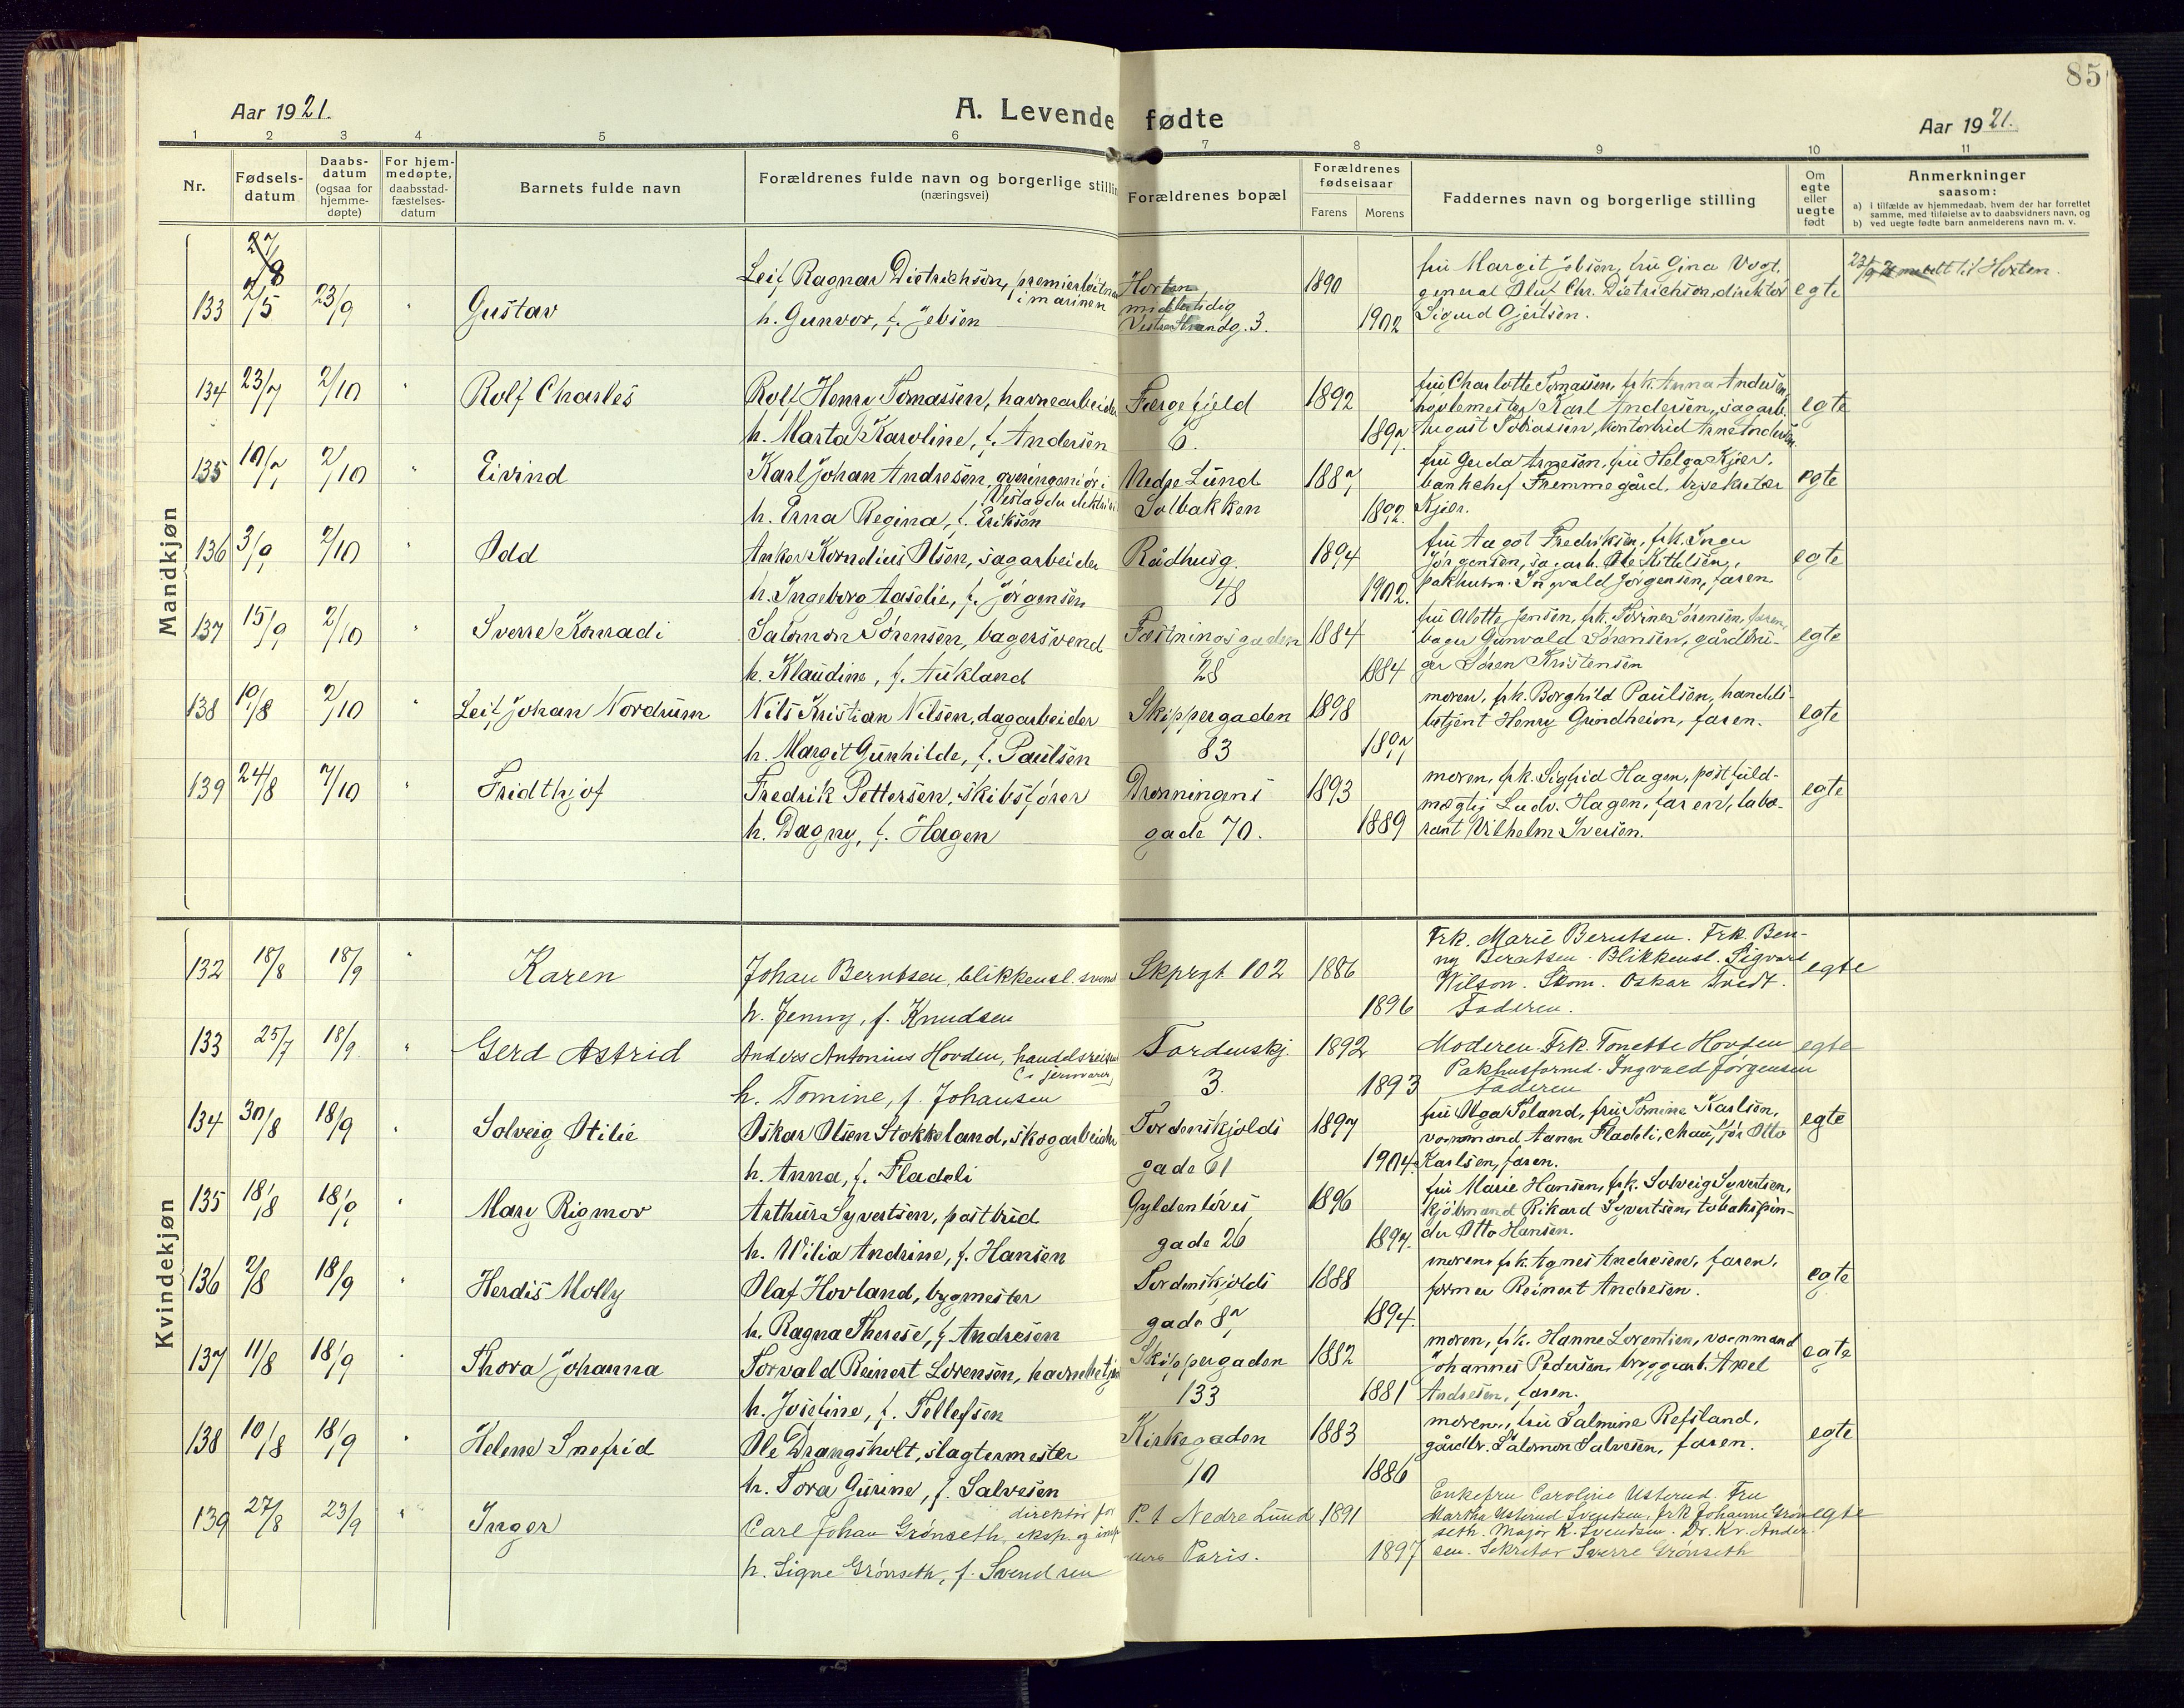 85
Aar 1921.
A. Levende fødte
Aar 1921.
1 2 3 4 5 6 7 8 9 10 11
Nr.
Fødsels-
datum
Daabs-
datum
(ogsaa for
hjemme-
døpte)
For hjem-
medøpte,
daabsstad-
fæstelses-
datum
Barnets fulde navn
Forældrenes fulde navn og borgerlige stillin
(næringsvei)
Forældrenes bopæl
Forældrenes
fødselsaar
Farens Morens
Faddernes navn og borgerlige stilling
Om
egte
eller
uegte
født
Anmerkninger
saasom:
a) i tilfælde av hjemmedaab, hvem der har forrettet
samme, med tilføielse av to daabsvidners navn, og
b) ved uegte fødte barn anmelderens navn m. v.
Mandkjøn
27/8
133 2/5 23/9 " Gustav
Leif Ragnar Dietrichson, premierløitnan
i marinen
h. Gunvor, f. Jebsen
Horten,
midlertidig
Vestre Strandg. 3.
1890
1902
fru Margit Jebsen, fru Gina Vogt,
general Oluf Chr. Dietrichson, direktør
Sigurd Gjertsen.
egte
23/9 21 meldt til Horten.
134 23/7 2/10 " Rolf Charles
Rolf Henry Tomassen, havnearbeide
h. Marta Karoline, f. Andersen
Færgefjeld
6.
1892
1897
fru Charlotte Tomassen, frk. Anna Andersen,
høvlemester Karl Andersen, sagarb.
August Tobiassen, kontorbud Arne Andersen
egte
135 10/7 2/10 " Eivind
Karl Johan Andresen, overingeniør i
Vestagder elektrici
h. Erna Regina, f. Eriksen
Nedre Lund
Solbakken
1887
1892.
fru Gerda Arnesen, fru Helga Kjær,
bankchef Fremmegård, bysekretær
Kjær.
egte
136 3/9 2/10 Odd
Anker Kornelius Olsen, sagarbeider
h. Ingeborg Aaselie, f. Jørgensen
Rådhusg.
48
1894
1902.
fru Aagot Fredriksen, frk. Inga
Jørgensen, sagarb. Ole Kittelsen,
pakhusm. Ingvald Jørgensen, faren
egte
137 15/9 2/10 " Sverre Konradi
Salomon Sørensen, bagersvend
h. Klaudine, f. Aukland
Fæstningsgaden
28
1884
1884
fru Alette Jensen, frk. Torine Sørensen, faren,
bager Gunvald Sørensen, gårdbru-
ger Søren Kristensen
egte
138 10/8 2/10 " Leif Johan Nordrum
Nils Kristian Nilsen, dagarbeider
h. Margit Gunhilde, f. Paulsen
Skippergaden
83
1898
1897
moren, frk. Borghild Paulsen, handels-
betjent Henry Grindheim, faren.
egte
139 24/8 7/10 " Fridthjof
Fredrik Pettersen, skibsfører
h. Dagny, f. Hagen
Dronningens
gade 70.
1893
1889
moren, frk. Sigfrid Hagen, postfuld-
mægtig Ludv. Hagen, faren, labo-
rant Vilhelm Iversen.
egte
Kvindekjøn
132 18/8 18/9 " Karen
Johan Berntsen, blikkensl. svend
h. Jenny, f. Knudsen
Skprgt 102
1886
1896
Frk. Marie Berntsen. Frk. Ben-
ny Berntsen. Blikkensl. Sigvart
Wilson. Skom. Oskar Tvedt.
Faderen.
egte
133 25/7 18/9 " Gerd Astrid
Anders Antonius Hovden, handelsreisen
(i jernvarer)
h. Tomine, f. Johansen
Tordenskj.
3.
1892
1893
Moderen. Frk. Tonette Hovden
Pakhusformd. Ingvald Jørgensen
Faderen
egte
134 30/8 18/9 " Solveig Otilie
Oskar Olsen Stokkeland, skogarbeider
h. Anna, f. Fladeli
Tordenskjolds
gade 61
1897
1904.
fru Olga Seland, fru Tomine Karlsen,
vognmand Aanen Fladeli, chauffør Otto
Karlsen, faren.
egte
135 18/8 18/9 " Mary Rigmor
Arthur Syvertsen, postbud
h. Wilia Andrine, f. Hansen
Gyldenløves
gade 26
1896
1897.
fru Marie Hansen, frk. Solveig Syvertsen,
kjøbmand Rikard Syvertsen, tobakspin-
der Otto Hansen.
136 2/8 18/9 " Herdis Molly
Olaf Hovland, bygmester
h. Ragna Therese, f. Andresen
Tordenskjolds
gade 87
1888
1894.
moren, frk. Agnes Andresen, faren,
former Reinert Andresen.
egte
137 11/8 18/9 " Thora Johanna
Torvald Reinert Lorensen, havnebetjen
h. Josefine, f. Tellefsen
Skippergaden
133
1882
1881
moren, frk. Hanne Lorentsen, vognmand
Johannes Pedersen, bryggearb. Axel
Andresen, faren.
egte
138 10/8 18/9 " Helene Snefrid
Ole Drangsholt, slagtermester
h. Tora Gurine, f. Salvesen
Kirkegaden
10
1883
1886
moren, fru Salmine Refsland,
gårdbr. Salomon Salvesen, faren.
egte
139 27/8 23/9 " Inger
direktør for
Carl Johan Grønseth, eksp. og imp
h. Signe Grønseth, f. Svendsen
P. t. Nedre Lund
Paris.
1891
1897
Enkefru Caroline Usterud. Fru
Martha Usterud Svendsen, frk Johanne Grøn-
seth. Major K. Svendsen. Dr. Kr. Ander-
sen. Sekretær Sverre Grønseth
egte